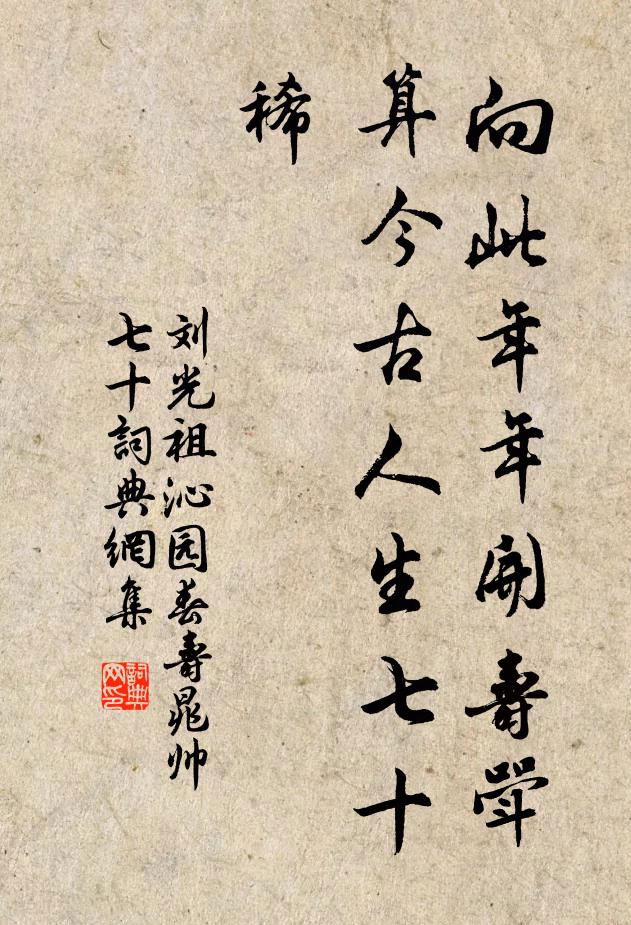 向此年年開壽斝
算今古人生七十
稀
刘光祖沁园春壽晁帅
七十詞典網集
詞典
网印